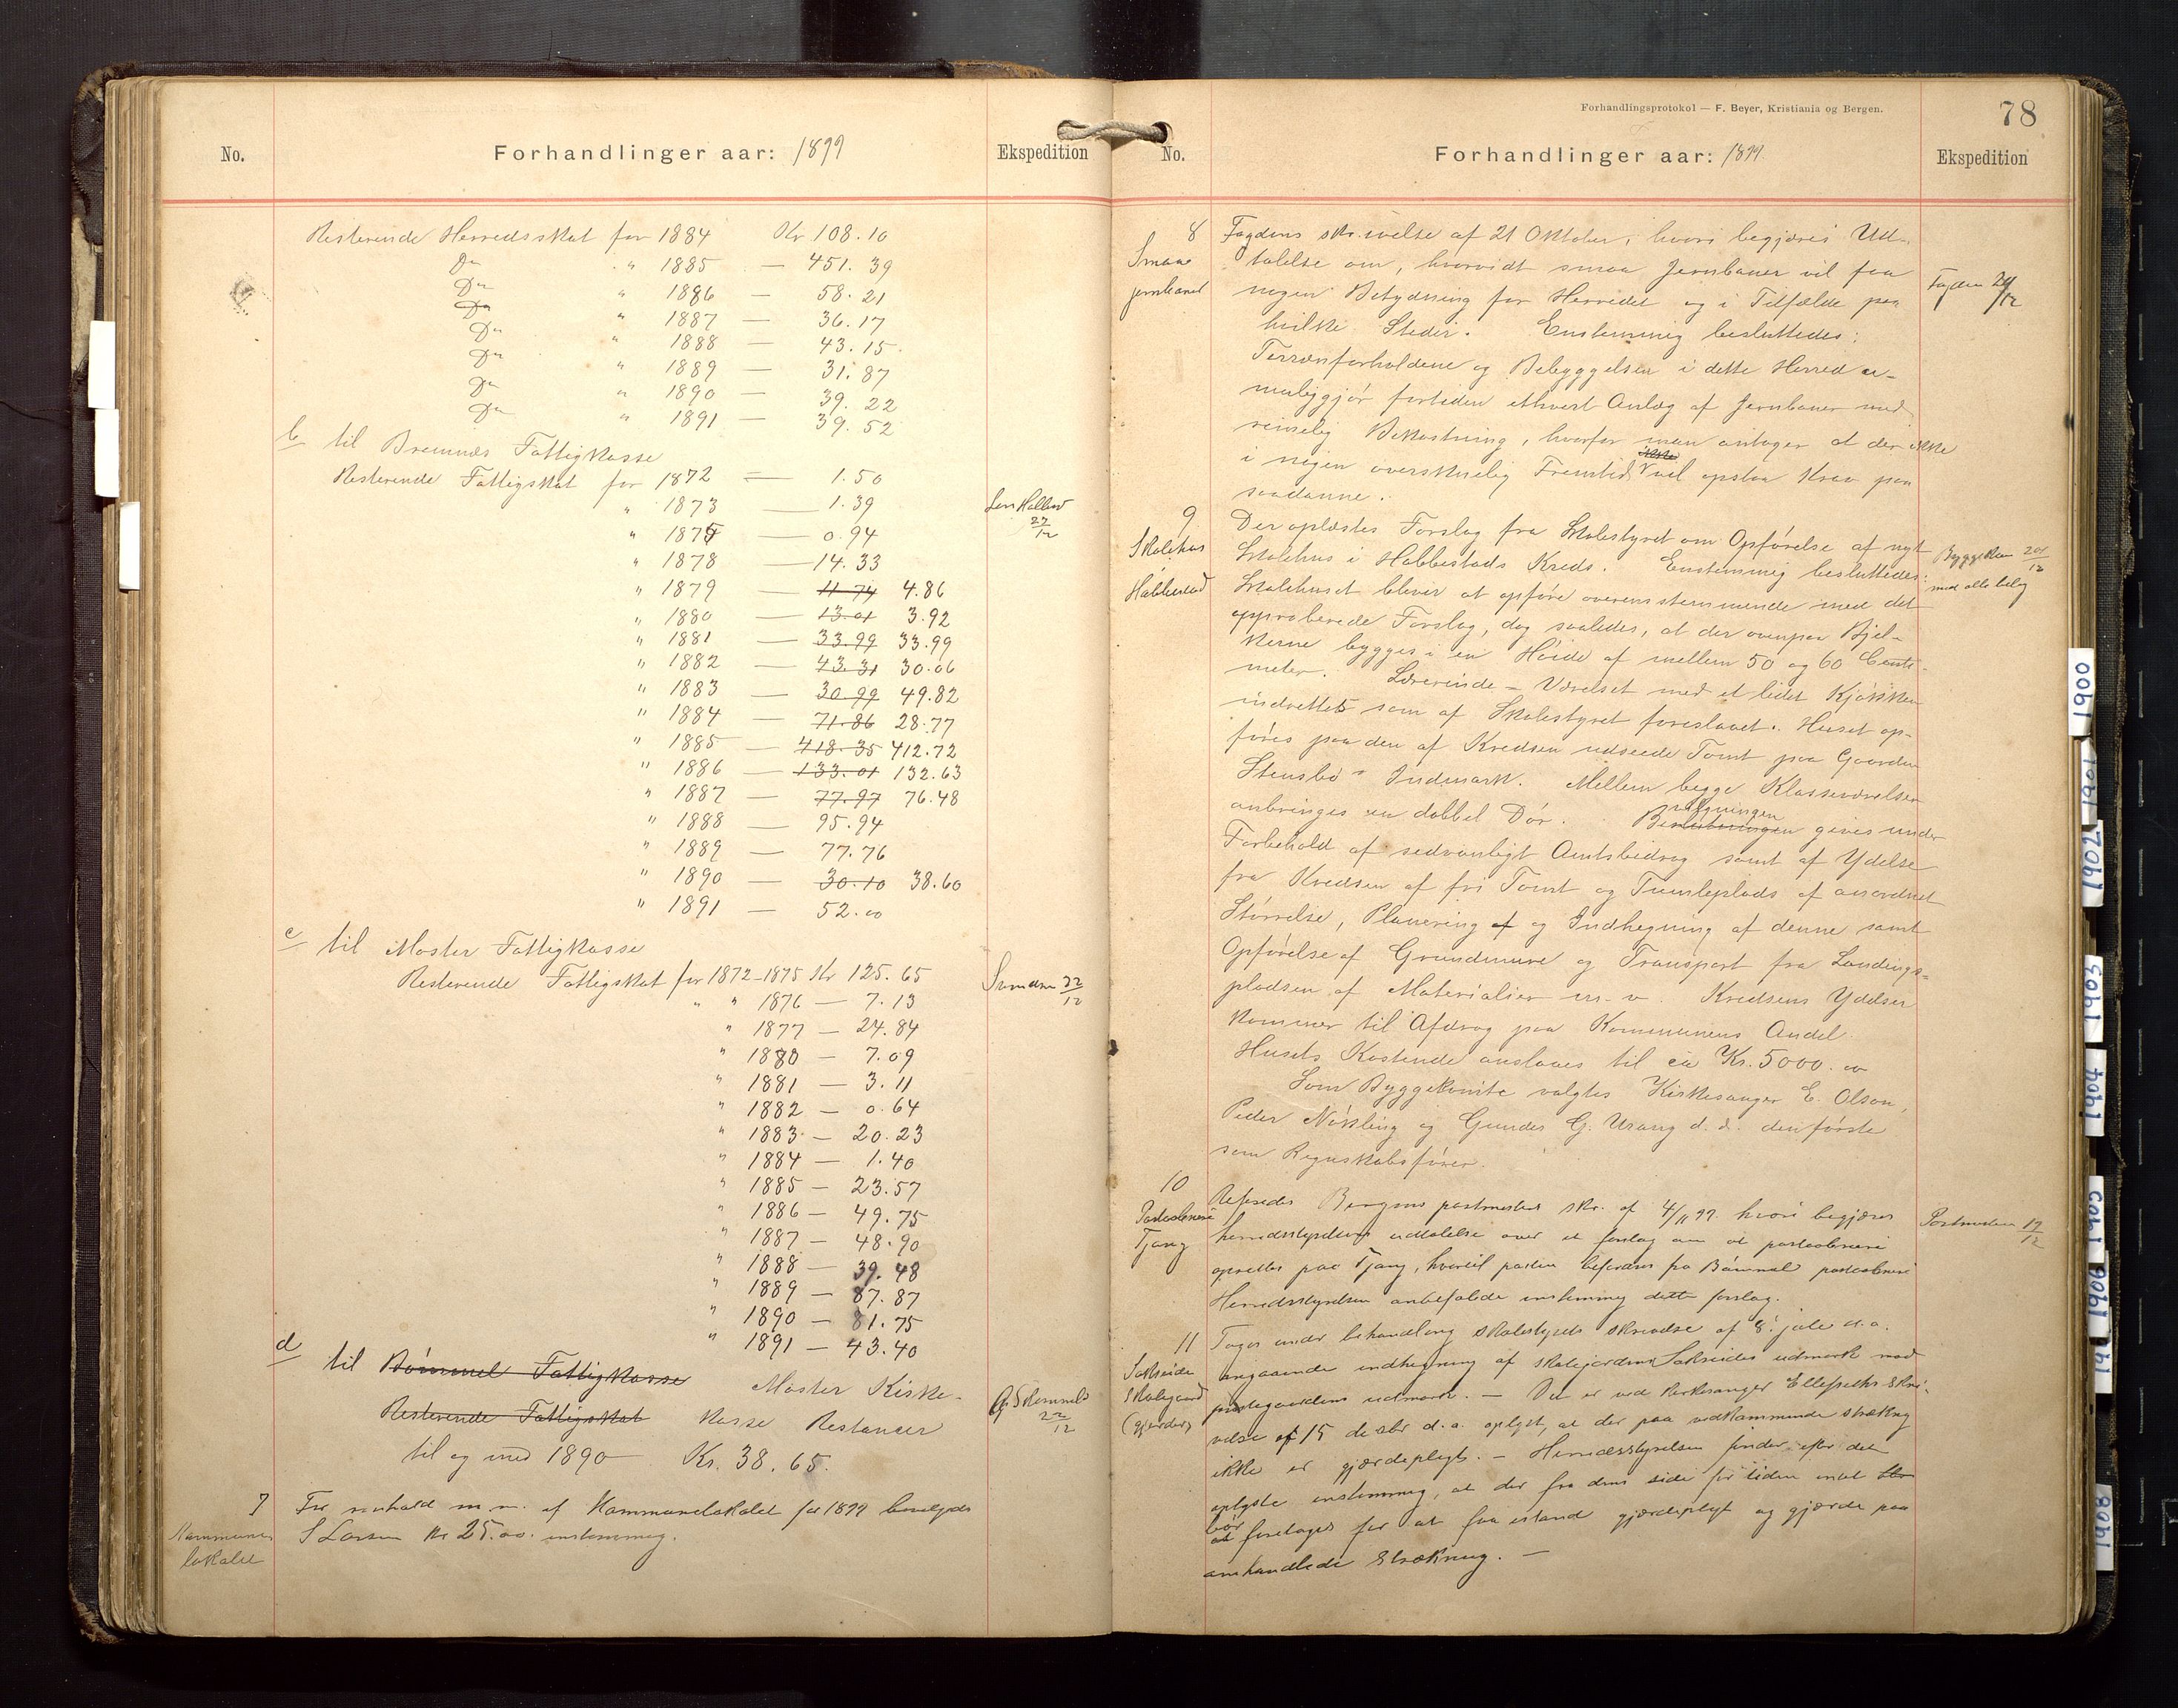 No.
Forhandlinger aar: 1899
Ekspedition
Resterende Herredsskat for 1884 Kr 108.10
Do " 1885 — 451.39
Do " 1886 — 58.21
Do " 1887 — 36.17
Do " 1888 — 43.15
Do " 1889 — 31.87
Do " 1890 — 39.22
Do " 1891 — 39.52
b til Bremnæs Fattigkasse
Resterende Fattigskat for 1872 — 1.50
" 1873 — 1.39
" 1875 — 0.94
" 1878 — 14.33
" 1879 — 11.74 4.86
" 1880 — 13.01 3.92
" 1881 — 33.99 33.99
" 1882 — 43.31 30.06
" 1883 — 30.99 49.82
" 1884 — 71.86 28.77
" 1885 — 418.35 412.72
" 1886 — 133.01 132.63
" 1887 — 77.97 76.48
" 1888 — 95.94
" 1889 — 77.76
" 1890 — 30.10 38.60
" 1891 — 52.00
22/12
c til Moster Fattigkasse
Resterende Fattigskat for 1872-1875 Kr 125.65
" " 1876 — 7.13
" 1877 — 24.84
" 1880 — 7.09
" 1881 — 3.11
" 1882 — 0.64
" 1883 — 20.23
" 1884 — 1.40
" 1885 — 23.57
" 1886 — 49.75
" 1887 — 48.90
" 1888 — 39.48
" 1889 — 87.87
" 1890 — 81.75
" 1891 — 43.40
22/12
d til Bømmel Fattigkasse Moster Kirke-
Resterende Fattigskat kasse Restancer
til og med 1890 Kr. 38.65.
22/12
7 For renhold m.m. af Kommunelokalet for 1899 bevilgedes
S Larsen Kr 25.00. enstemmig.
Kommune
lokalet
Forhandlingsprotokol — F. Beyer, Kristiania og Bergen.
78
No.
Forhandlinger aar: 1899.
Ekspedition
8
Smaae
jernbaner
Fogdens skrivelse af 21 Oktober, hvori begjæres Ud-
talelse om, hvorvidt smaa Jernbaner vil faa
nogen Betydning for Herredet og i Tilfælde paa
hvilke Steder. Enstemmig besluttedes:
Terrænforholdene og Bebyggelsen i dette Herred u-
muliggjør fortiden ethvert Anlæg af Jernbaner med
rimelig Bekostning, hvorfor man antager at der ikke
i nogen overskuelig Fremtid vil opstaa Krav paa
saadanne.
Fogden 29/12
9
Skolehus
Habbestad
Der oplæstes Forslag fra Skolestyret om Opførelse af nyt
Skolehus i Habbestads Kreds. Enstemmig besluttedes:
Skolehuset bliver at opføre overensstemmende med det
approberede Forslag, dog saaledes, at der ovenpaa Bjel-
kerne bygges i en Høide af mellem 50 og 60 Centi-
meter. Lærerinde-Værelset med et lidet Kjøkken
indrettes som af Skolestyret foreslaaet. Huset op-
føres paa den af Kredsen udseede Tomt paa Gaarden
Stensbø's Indmark. Mellem begge Klasseværelser
anbringes en dobbel Dør. Bevilgningen gives under
Forbehold af sedvanligt Amtsbidrag samt af Ydelse
fra Kredsen af fri Tomt og Tumleplads af anordnet
Størrelse, Planering af og Indhegning af denne samt
Opførelse af Grundmure og Transport fra Landings-
pladsen af Materialier m. v. Kredsens Ydelser
kommer til Afdrag paa Kommunens Andel.
Husets Kostende anslaaes til ca Kr. 5000.00
Som Byggekomite valgtes Kirkesanger E. Olson,
Peder Nøkling og Gunder G. Urang d.d. den første
som Regnskabsfører.
Byggekom 29/12
med alle bilag
10
Postaabneri
Tjong
Refereredes Bergens postmesters skr. af 4/11 99. hvori begjæres
herredsstyrelsens udtalelse over et forslag om at postaabneri
oprettes paa Tjong, hvortil posten befordres fra Bømmel postaabneri
Herredsstyrelsen anbefalede enstemmig dette forslag.
Postmesteren 19/12
11
Sakseide
Skolegaard
(gjerder)
Toges under behandling skolestyrets skrivelse af 8. jule d.a.
angaaende indhegning af skolejordens Sakseides udmark mod
prestegaardens udmark. — Det er ved kirkesanger Ellefseths skri-
velse af 15 desbr d.a. oplyst, at der paa vedkommende strækning
ikke er gjærdepligt. — Herredsstyrelsen finder efter det
oplyste enstemmig, at der fra dens side for tiden intet
bør foretages for at faa istand gjærdepligt og gjærde paa
omhandlede strækning. —
1900
1901
1902
1903
1904
1905
1906
1908